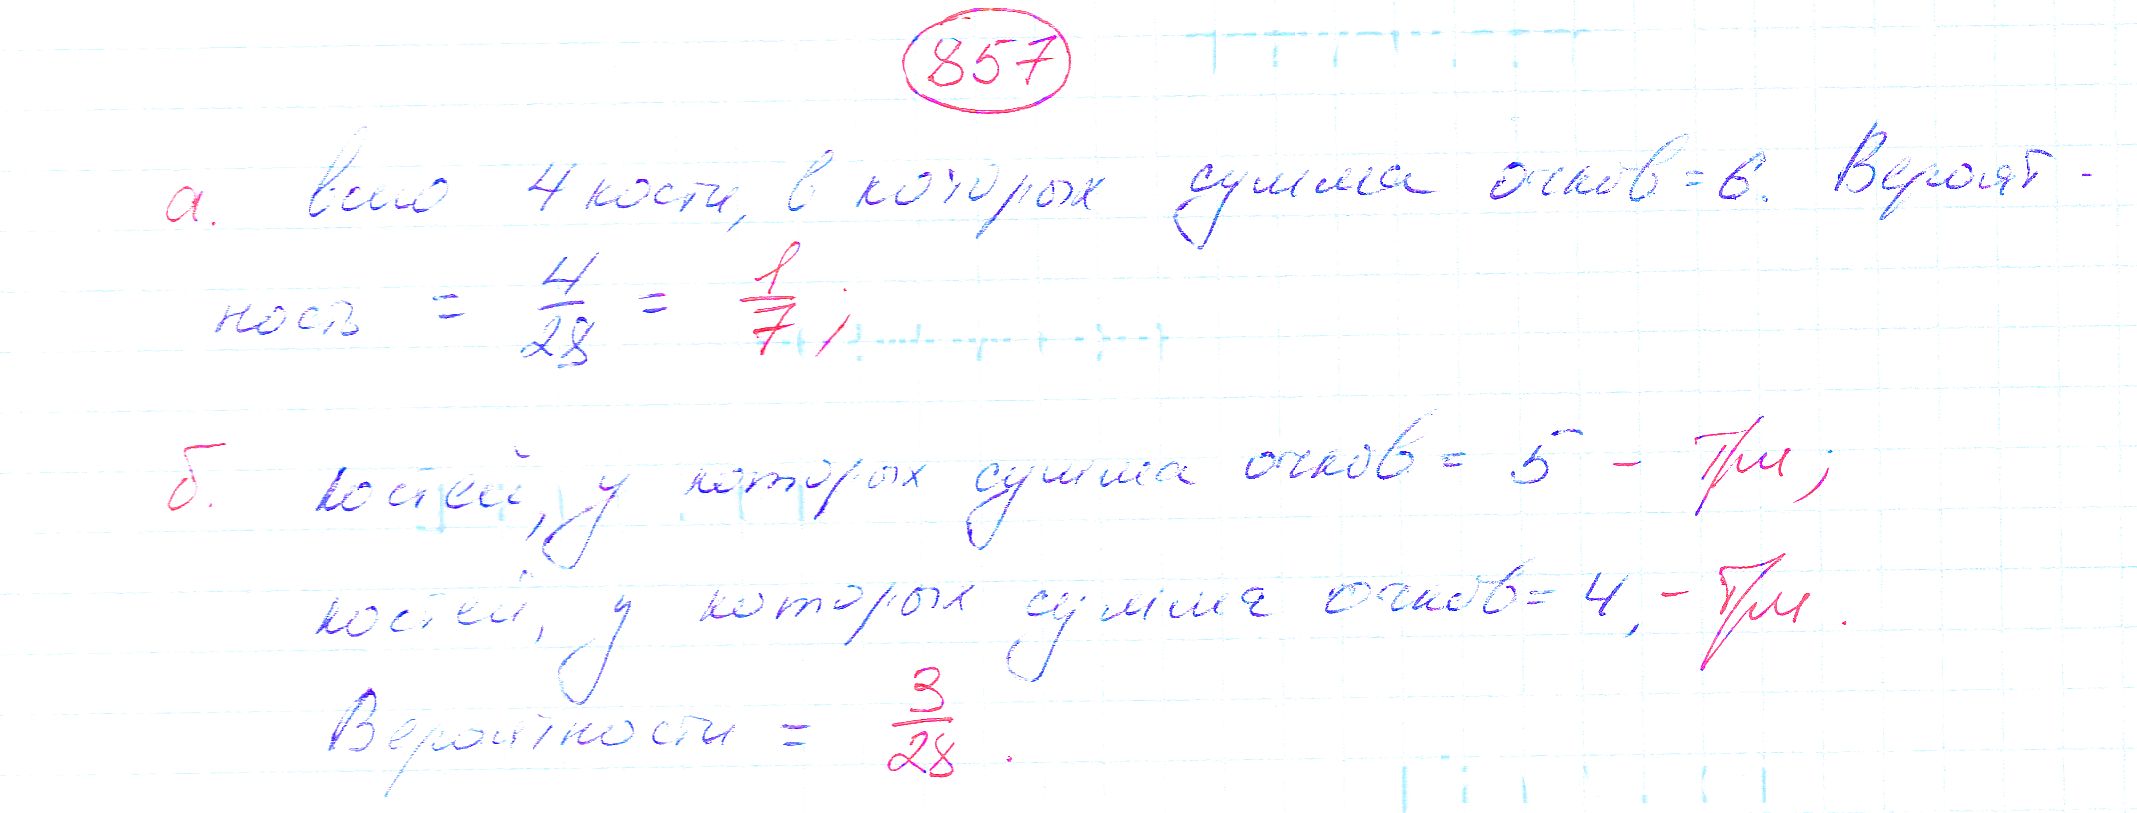 857
а. всего 4 кости, в которых сумма очков = 6. Вероят-
ность = 4/28 = 1/7;
б. костей, у которых сумма очков = 5 - три;
костей, у которых сумма очков = 4, - три.
Вероятности = 3/28.